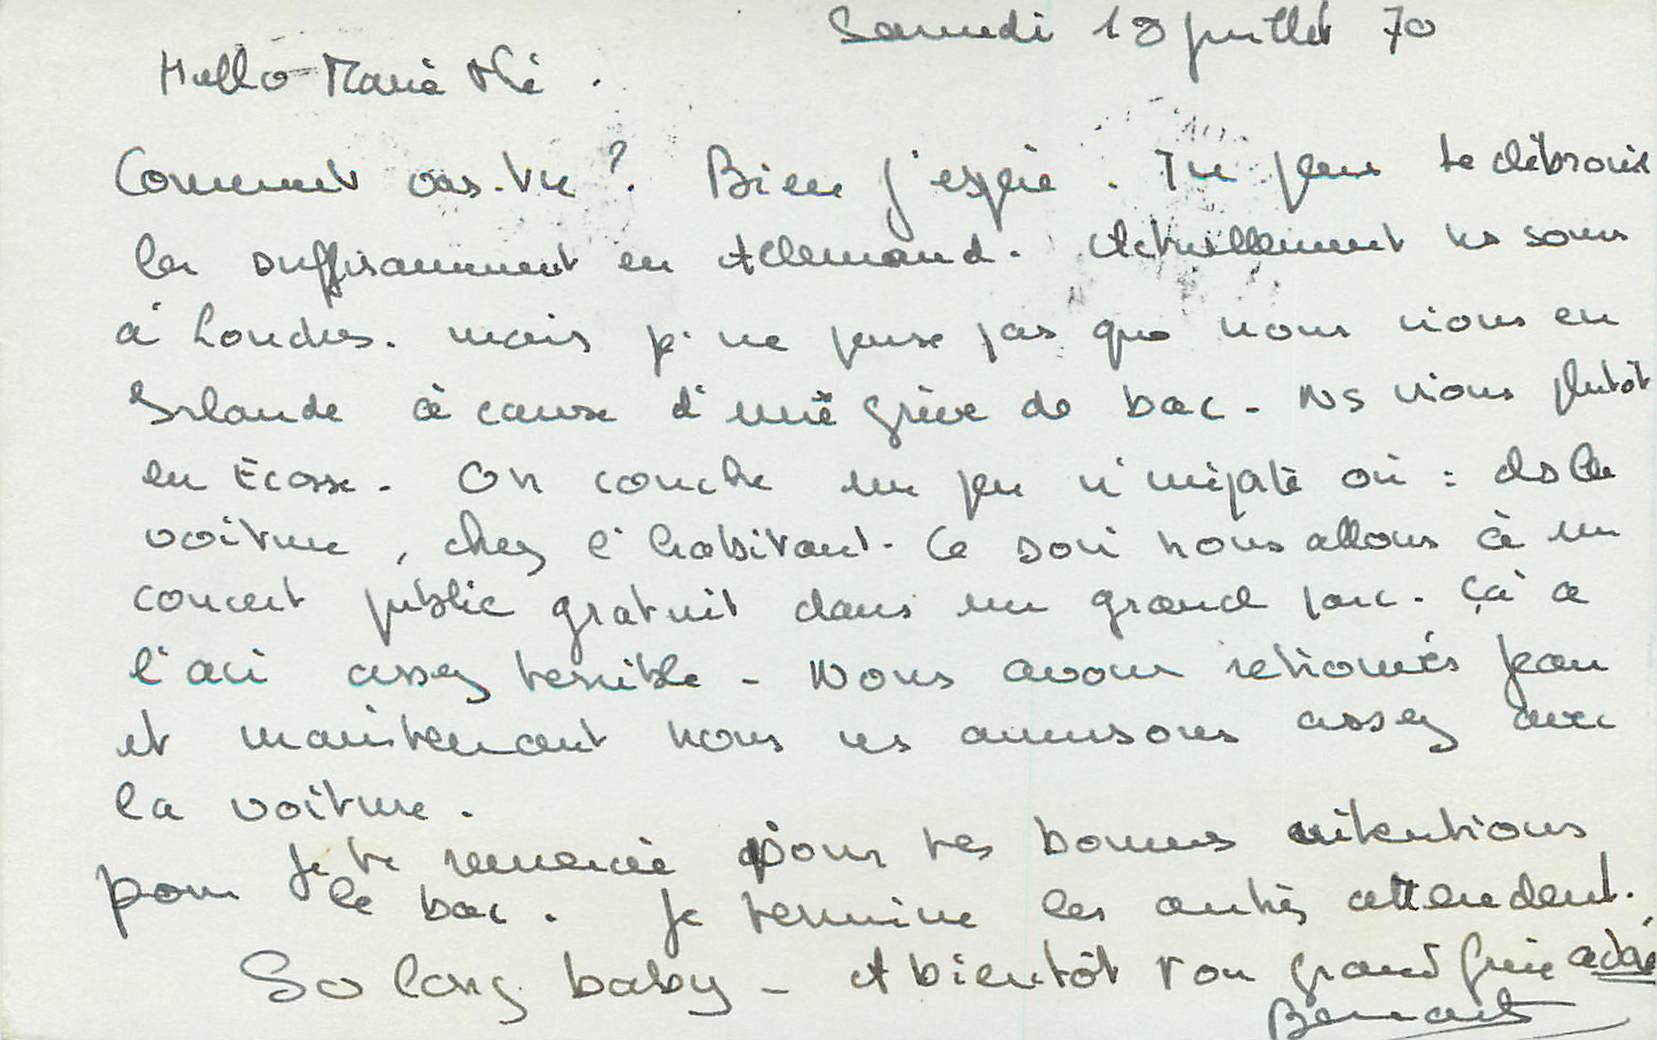 Samedi 18 juillet 70
Hello Marie
Comment vas-tu ? Bien j'espère. Tu peux te débrouil
ler suffisamment en Allemand. Actuellement ns sommes
à Londres. mais je ne pense pas que nous irons en
Irlande à cause d'une grève de bac - Ns irons plutôt
en Ecosse. On couche un peu n'importe où : ds la
voiture, chez l'habitant. Ce soir nous allons à un
concert public gratuit dans un grand parc. çà a
l'air assez terrible - Nous avons retrouvés Jean
et maintenant nous ns amusons assez avec
la voiture.
Je te remercie pour tes bonnes intentions
pour le bac. Je termine les autres attendent.
So long baby - A bientôt ton grand frère adoré